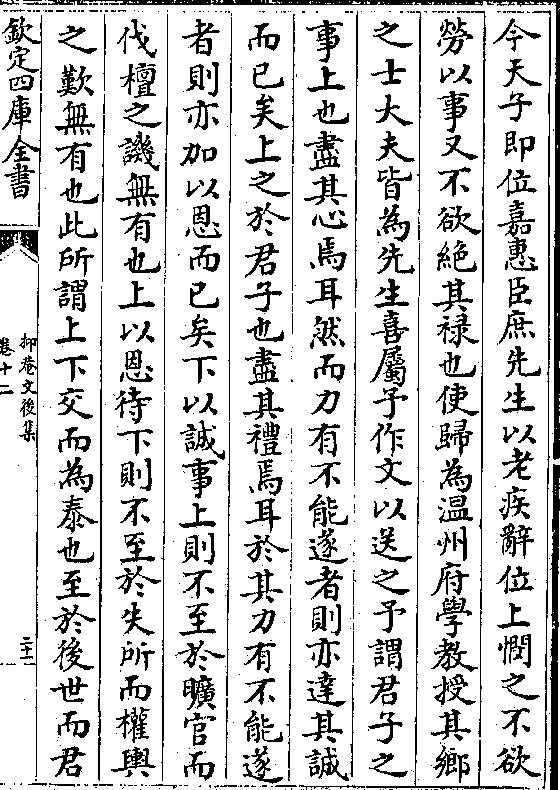 今天子即位嘉惠臣庶先生以老疾辭位上憫之不欲
勞以事又不欲絶其禄也使歸為温州府學教授其鄉
之士大夫皆為先生喜屬予作文以送之予謂君子之
事上也盡其心焉耳然而力有不能遂者則亦達其誠
而已矣上之於君子也盡其禮焉耳於其力有不能遂
者則亦加以恩而已矣下以誠事上則不至於曠官而
伐檀之譏無有也上以恩待下則不至於失所而權輿
之歎無有也此所謂上下交而為泰也至於後世而君
欽定四庫全書
抑菴文後集
卷十二
二十二